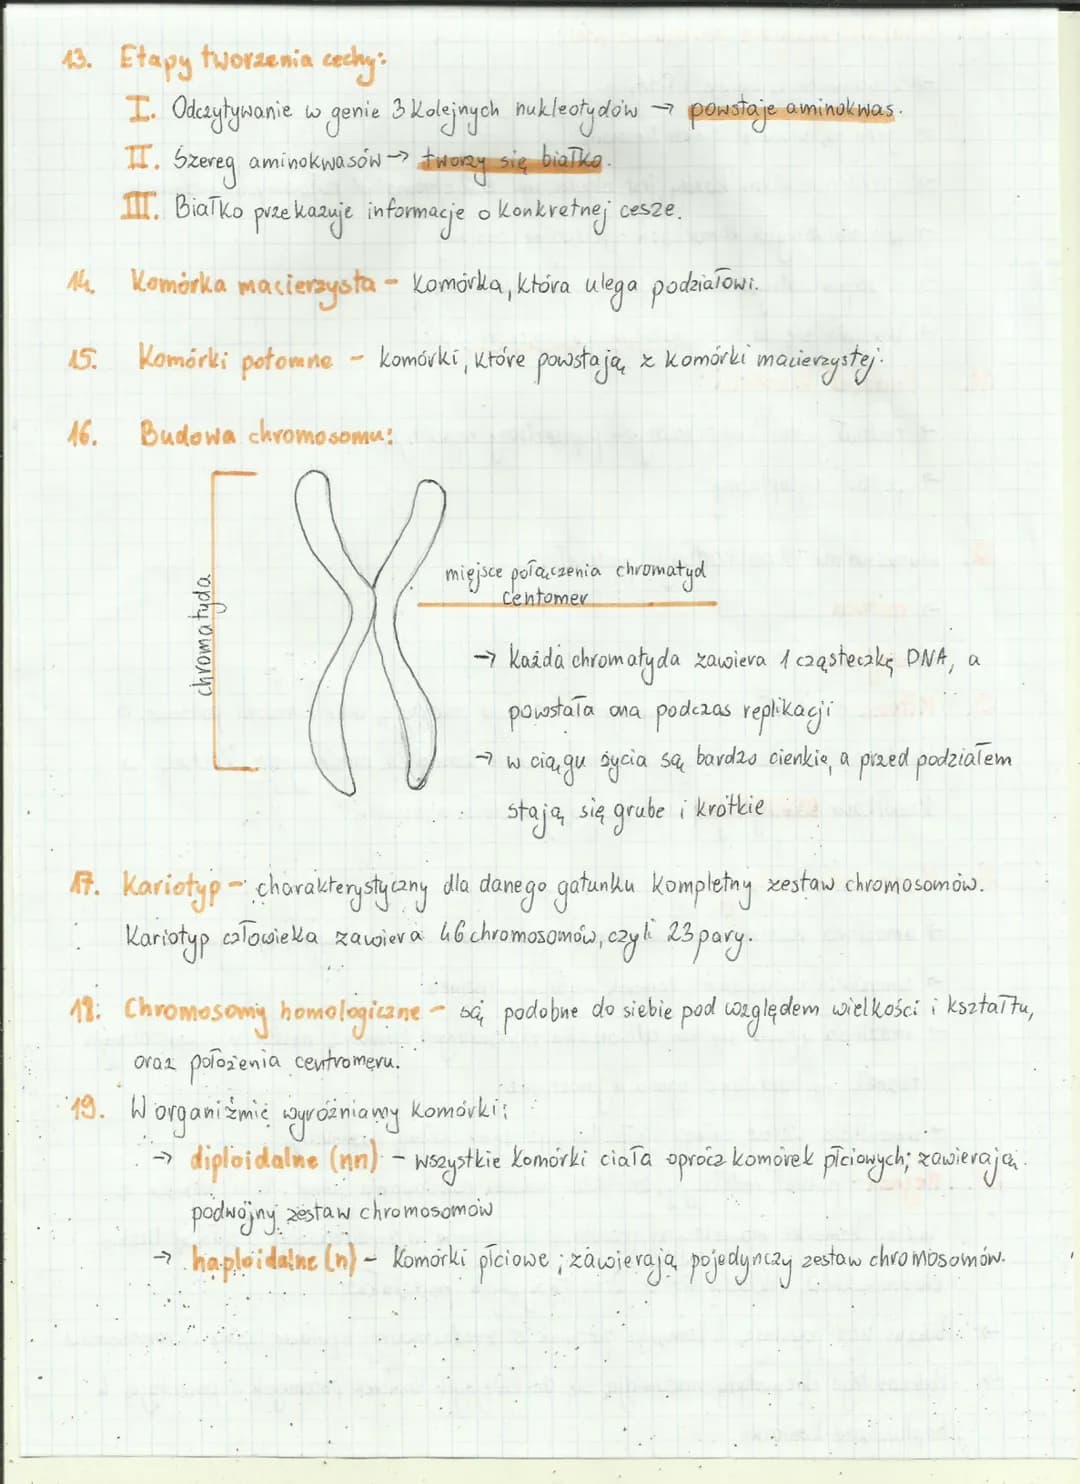 13. Etapy tworzenia cechy:
I. Odczytywanie w genie 3 kolejnych nukleotydów → powstaje aminokwas.
II. Szereg aminokwasów → tworzy się białko.
III. Białko przekazuje informacje o konkretnej cesze.
14. Komórka macierzysta - komórka, która ulega podziałowi.
15. Komórki potomne - komórki, które powstają z komórki macierzystej.
16. Budowa chromosomu:
chromatyda
miejsce połączenia chromatyd
centomer
→ Każda chromatyda zawiera 1 cząsteczkę DNA, a
powstała ona podczas replikacji
→ w ciągu życia są bardzo cienkie, a przed podziałem
stają się grube i krótkie
17. Kariotyp - charakterystyczny dla danego gatunku kompletny zestaw chromosomów.
Kariotyp człowieka zawiera 46 chromosomów, czyli 23 pary.
18. Chromosomy homologiczne - są podobne do siebie pod względem wielkości i kształtu,
oraz położenia centromeru.
19. W organiźmie wyróżniamy komórki:
→ diploidalne (nn) - wszystkie komórki ciała oprócz komórek płciowych; zawierają
podwójny zestaw chromosomów
→ haploidalne (n) - komórki płciowe; zawierają pojedynczy zestaw chromosomów.